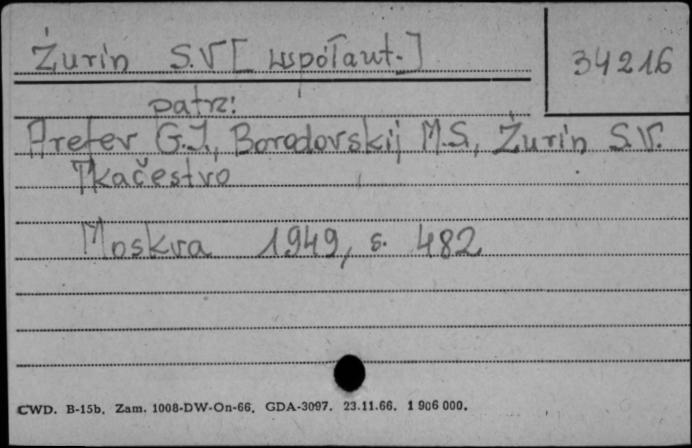 Żurin S.V [współaut.]
34216
patrz:
Arefev G.I., Borodovskij M.S., Żurin S.V.
Tkačestvo
Moskva 1949, s. 482
CWD. B-15b. Zam. 1008-DW-On-66. GDA-3097. 23.11.66. 1 906 000.